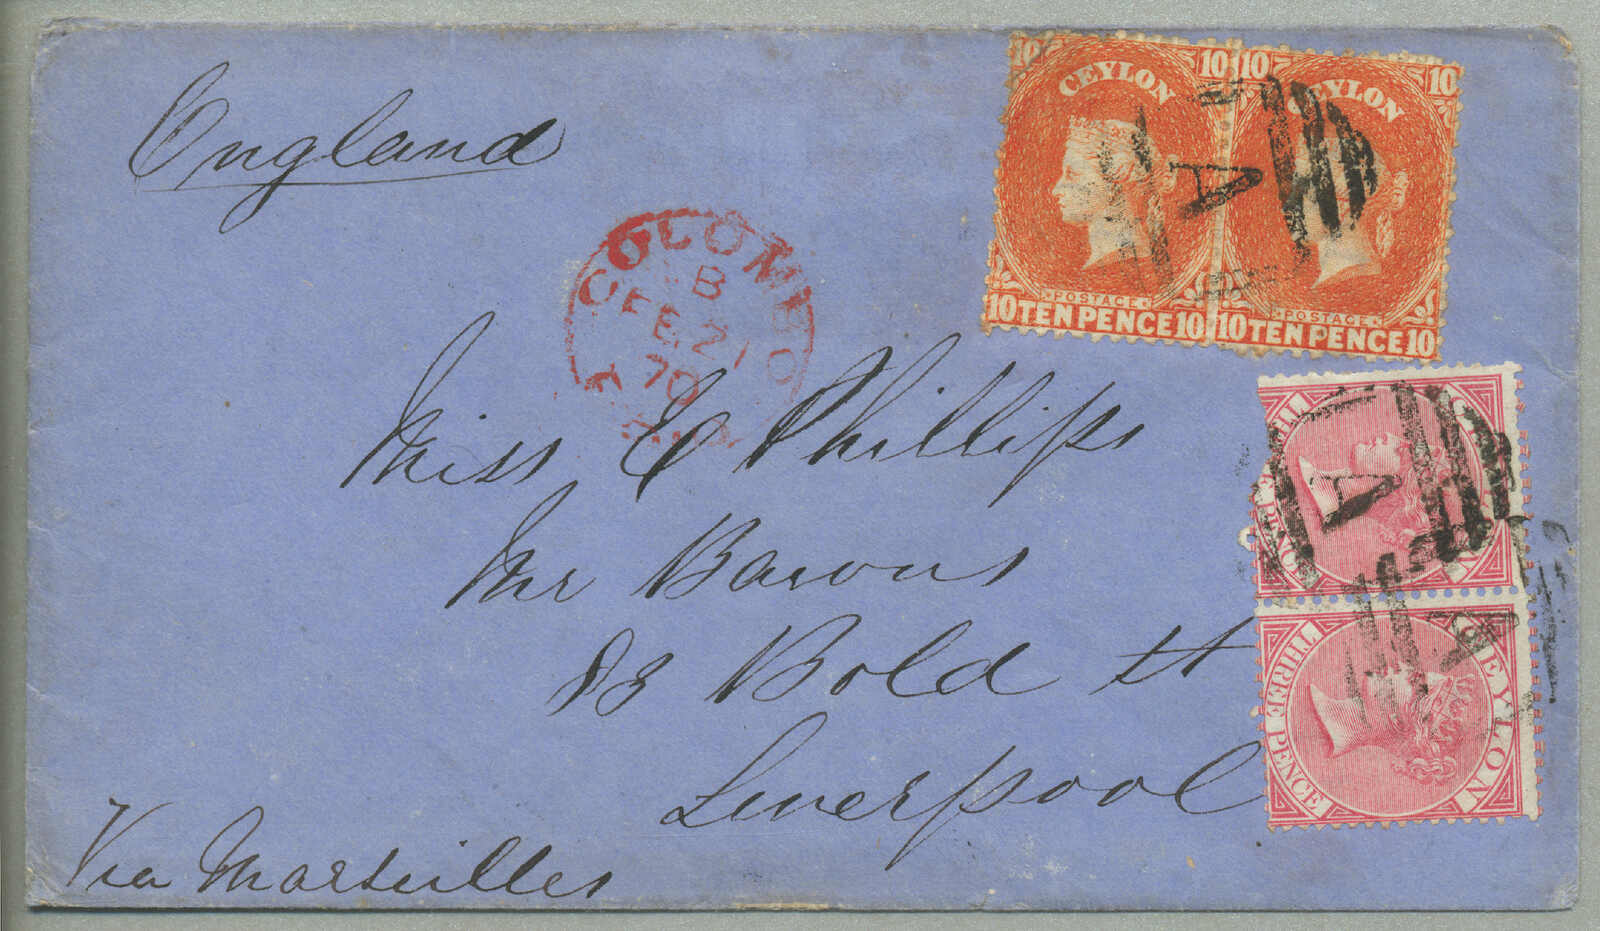 England
10 CEYLON 10
POSTAGE
10 TEN PENCE 10
10 CEYLON 10
POSTAGE
10 TEN PENCE 10
A
COLOMBO
B
FE 21
70
PAID
Miss E Phillips
Mr Barons
83 Bold St
Liverpool
Via Marseilles
THREE PENCE
A
CEYLON
THREE PENCE
A